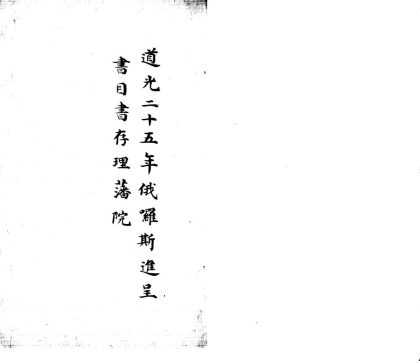 道光二十五年俄囉斯進呈
書目書存理藩院